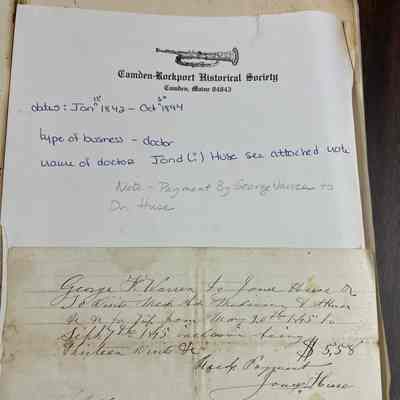 Camden-Rockport Historical Society
Camden, Maine 04843
dates: Jan 1st 1843 - Oct 3rd 1844
type of business - doctor
name of doctor Jond(?) Huse see attached note
Note - Payment By George to
Dr. Huse
George to Huse Dr
To Visits Med &
from May 20th 1845 to
Sept 7th 1845 inclusive being
Thirteen Visits &c $5,58
Recd Payment
Huse